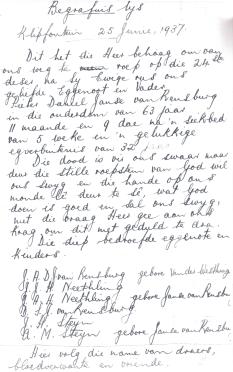 Begrafnis lys
Klipfontein 25 Junie, 1937.
Dit het die Heer behaag om van
ons weg te roep op die 24 ste
deser, na sy Ewige rus ons
geliefde Eggenoot en Vader,
Daniel Janse van Rensburg
in die ouderdom van 63 jaar
11 maande en 9 dae na 'n siekbed
van 5 weke en 'n gelukkige
egverbintenis van 32 jaar.
Die dood is vir ons swaar maar
deur die stille roepstem van God wil
ons swyg en die hande op ons
monde lê deur te sê, wat God
doen is goed en sal ons swyg,
met die vraag Heer gee aan ons
krag om dit met geduld te dra.
Die diep bedroefde eggenote en
kinders.
van Rensburg gebore van der Westhuizen
Neethling
Neethling gebore Janse van Rensburg
van Rensburg
Steyn
M. Steyn gebore Janse van Rensburg
Hier volg die name van draers,
bloedverwante en vriende.